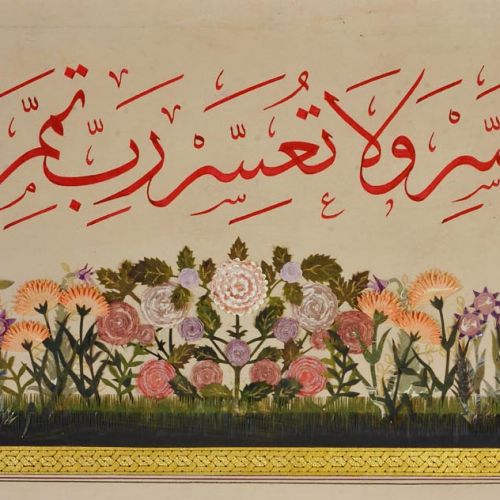 سِّر وَلَا تُعَسِّر رَبِّ تَمِّم